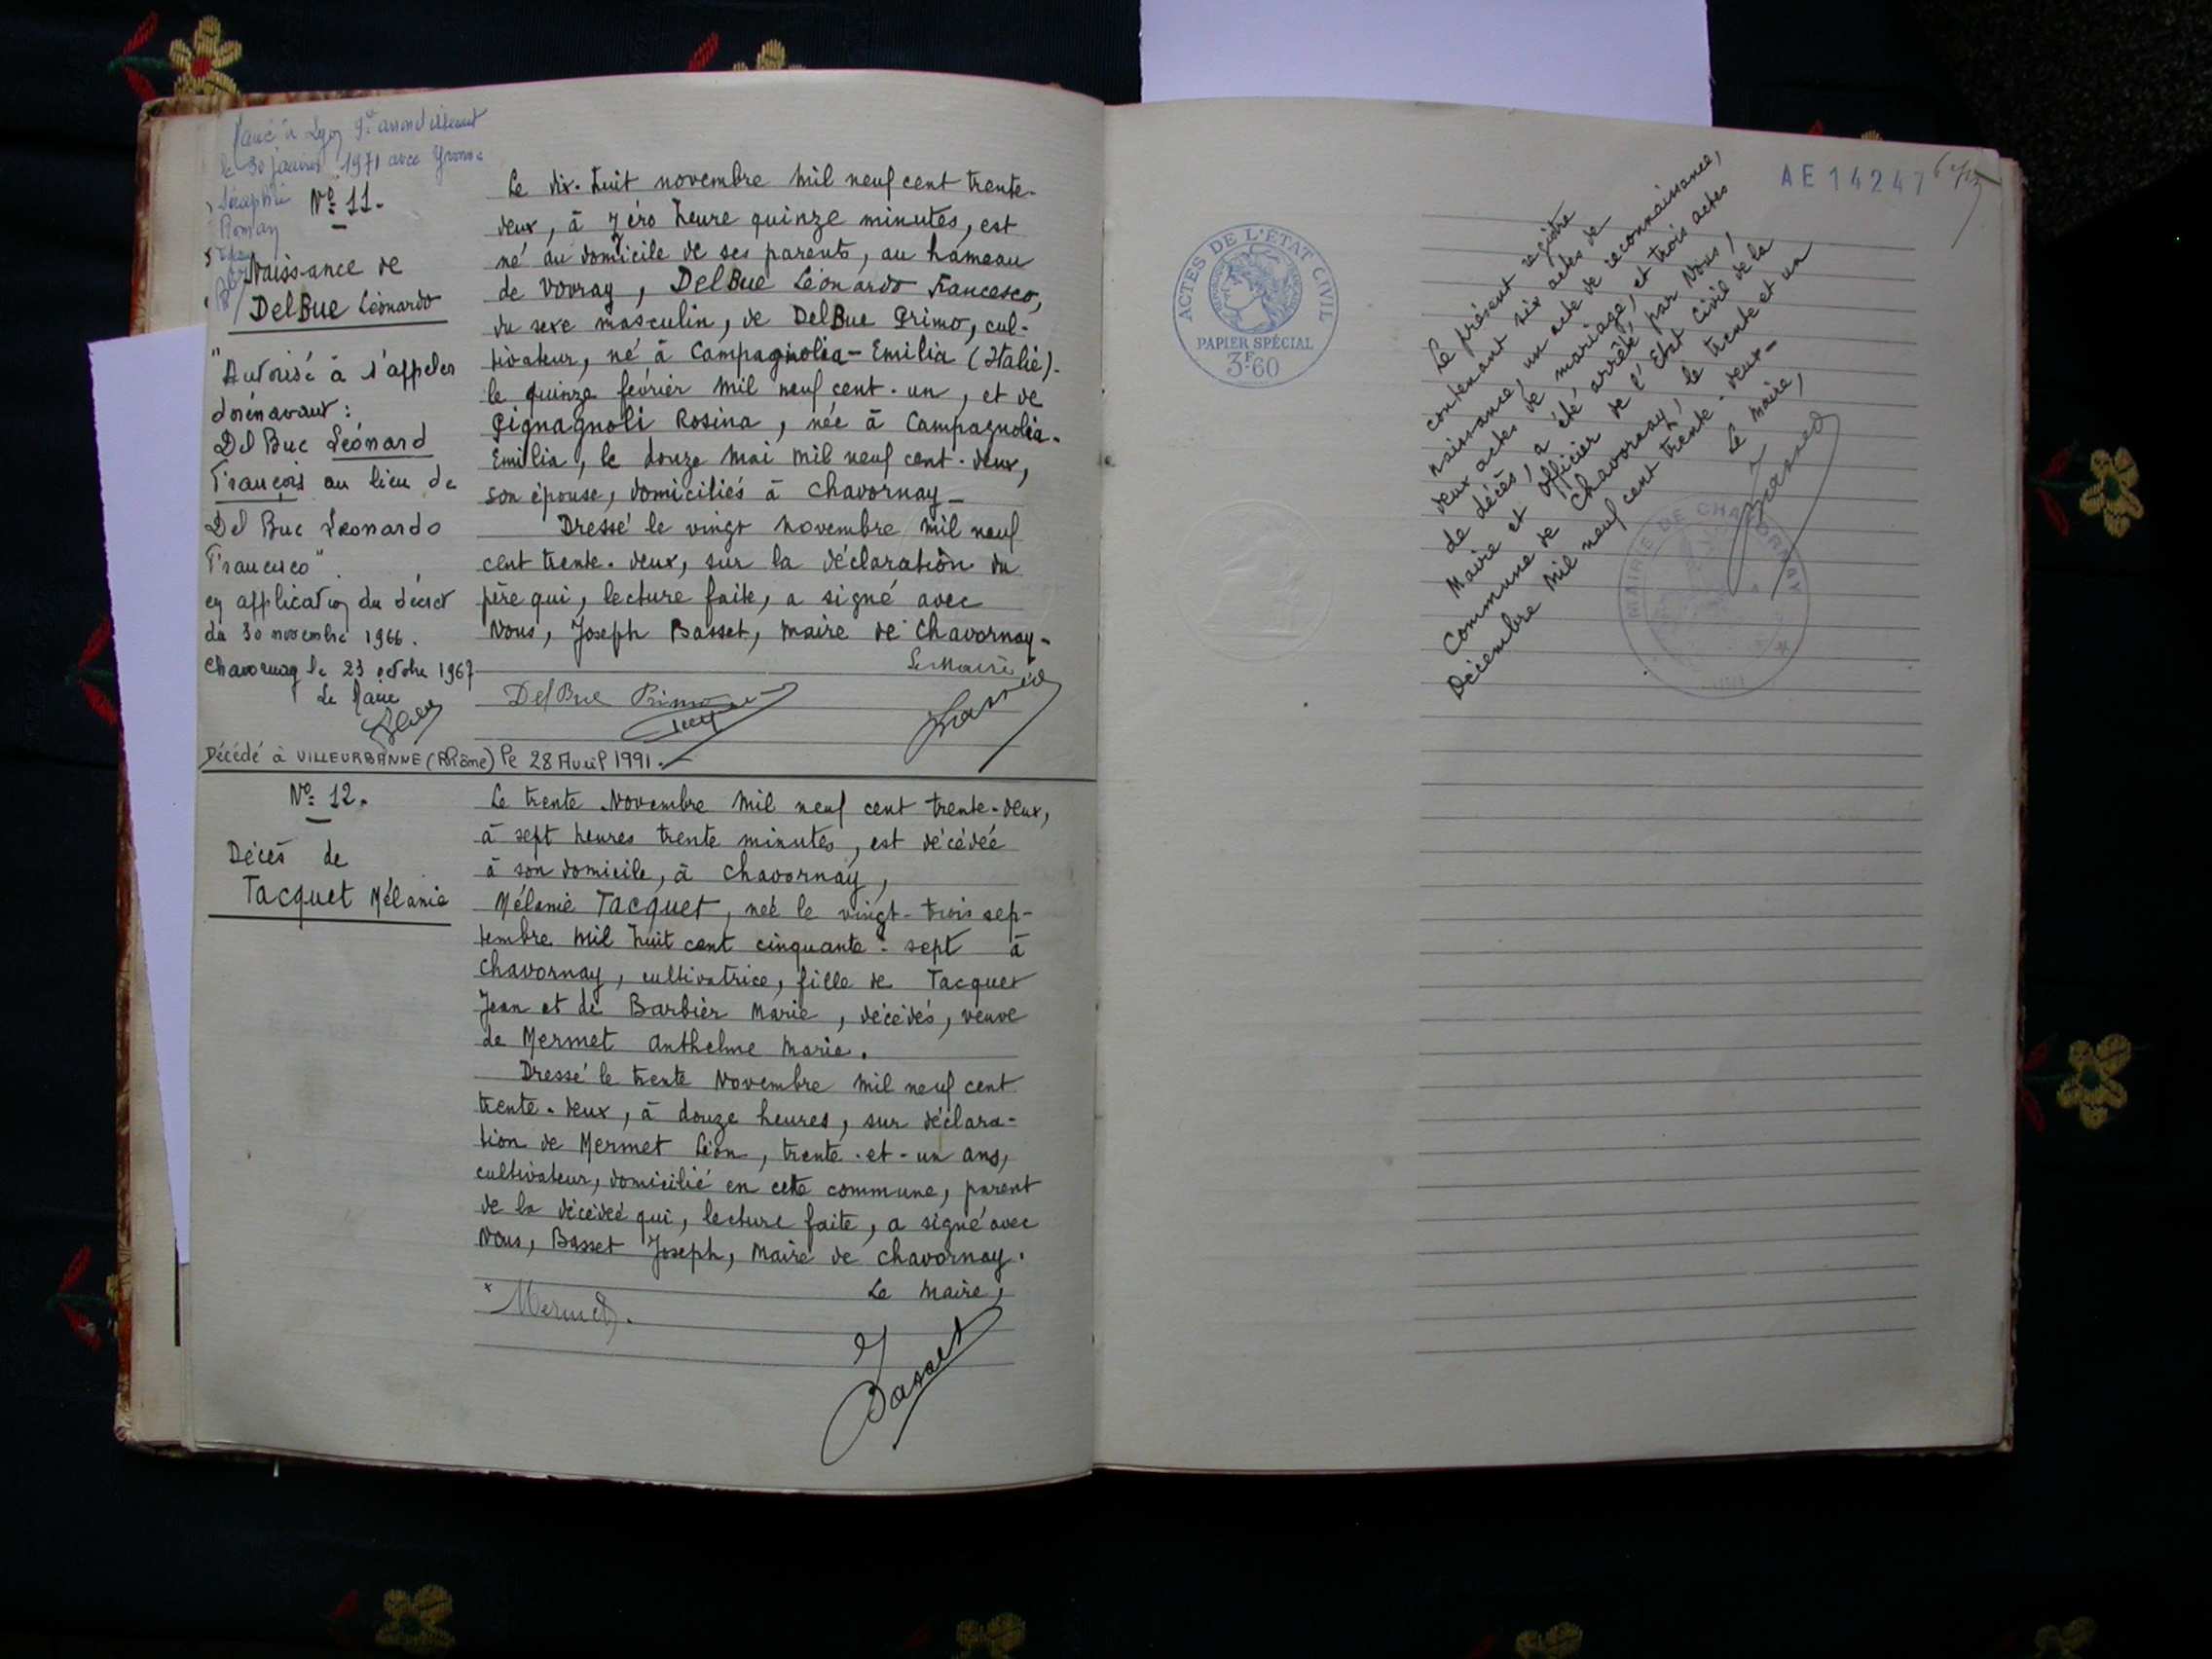 à Lyon 9e arrondissement
le 30 janvier 1971 avec Yvonne
Séraphie
Nº 11.
Naissance de
DelBue Léonardo
"Autorisé à s'appeler
dorénavant :
Del Bue Léonard
François au lieu de
Del Bue Leonardo
Francesco".
en application du décret
du 30 novembre 1966.
Chavornay le 23 octobre 1967
Le Maire
Le dix-huit novembre mil neuf cent trente-
deux, à zéro heure quinze minutes, est
né au domicile de ses parents, au hameau
de Vovray, DelBue Léonardo Francesco,
du sexe masculin, de DelBue Primo, cul-
tivateur, né à Campagnolia-Emilia (Italie).
le quinze février mil neuf cent-un, et de
Pignagnoli Rosina, née à Campagnolia-
Emilia, le douze mai mil neuf cent-deux,
son épouse, domiciliés à Chavornay-
Dressé le vingt novembre mil neuf
cent trente-deux, sur la déclaration du
père qui, lecture faite, a signé avec
Nous, Joseph Basset, maire de Chavornay-
Le Maire
DelBue Primo
Basset
Décédé à VILLEURBANNE (Rhône) le 28 Avril 1991.
Nº 12.
Décès de
Tacquet Mélanie
Le trente Novembre mil neuf cent trente-deux,
à sept heures trente minutes, est décédée
à son domicile, à Chavornay,
Mélanie Tacquet, née le vingt-trois sep-
tembre mil huit cent cinquante-sept à
Chavornay, cultivatrice, fille de Tacquet
Jean et de Barbier Marie, décédés, veuve
de Mermet Anthelme Marie.
Dressé le trente Novembre mil neuf cent
trente-deux, à douze heures, sur déclara-
tion de Mermet Léon, trente-et-un ans,
cultivateur, domicilié en cette commune, parent
de la décédée qui, lecture faite, a signé avec
Nous, Basset Joseph, Maire de Chavornay.
Le Maire,
x Mermet.
Basset
ACTES DE L'ÉTAT CIVIL
PAPIER SPÉCIAL
3F60
AE 14247
Le présent registre
contenant six actes de
naissance, un acte de reconnaissance,
deux actes de mariage, et trois actes
de décès, a été arrêté, par Nous,
Maire et Officier de l'Etat Civil de la
Commune de Chavornay, le trente et un
Décembre mil neuf cent trente-deux-
Le Maire,
Basset
MAIRIE DE CHAVORNAY